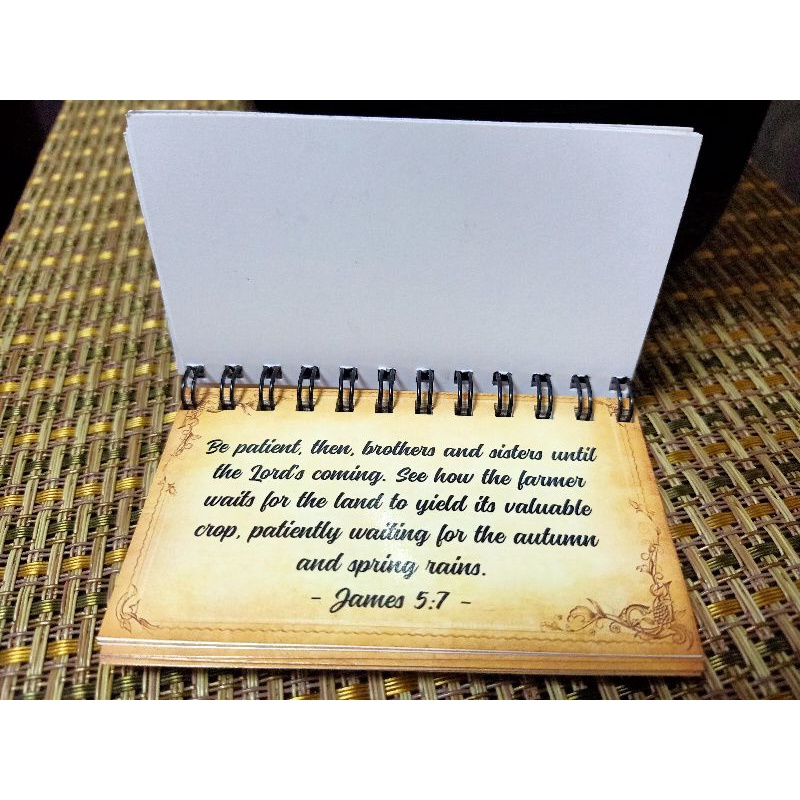 Be patient, then, brothers and sisters until
the Lord's coming. See how the farmer
waits for the land to yield its valuable
crop, patiently waiting for the autumn
and spring rains.
- James 5:7 -